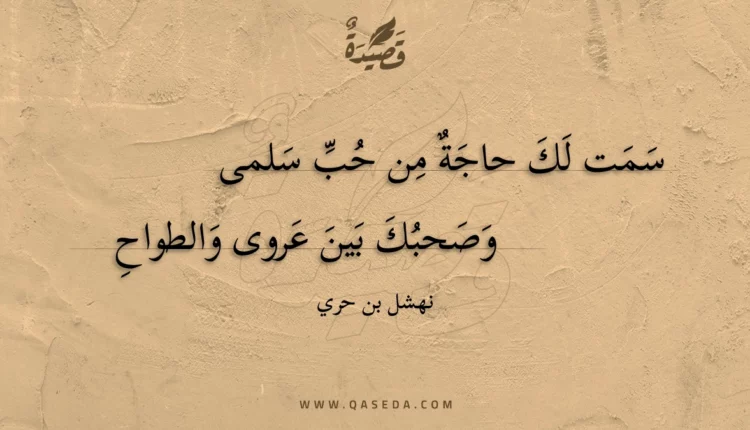 قَصِيدَةٌ
سَمَت لَكَ حاجَةٌ مِن حُبِّ سَلمى
وَصَحبُكَ بَينَ عَروى وَالطواحِ
نهشل بن حري
WWW.QASEDA.COM